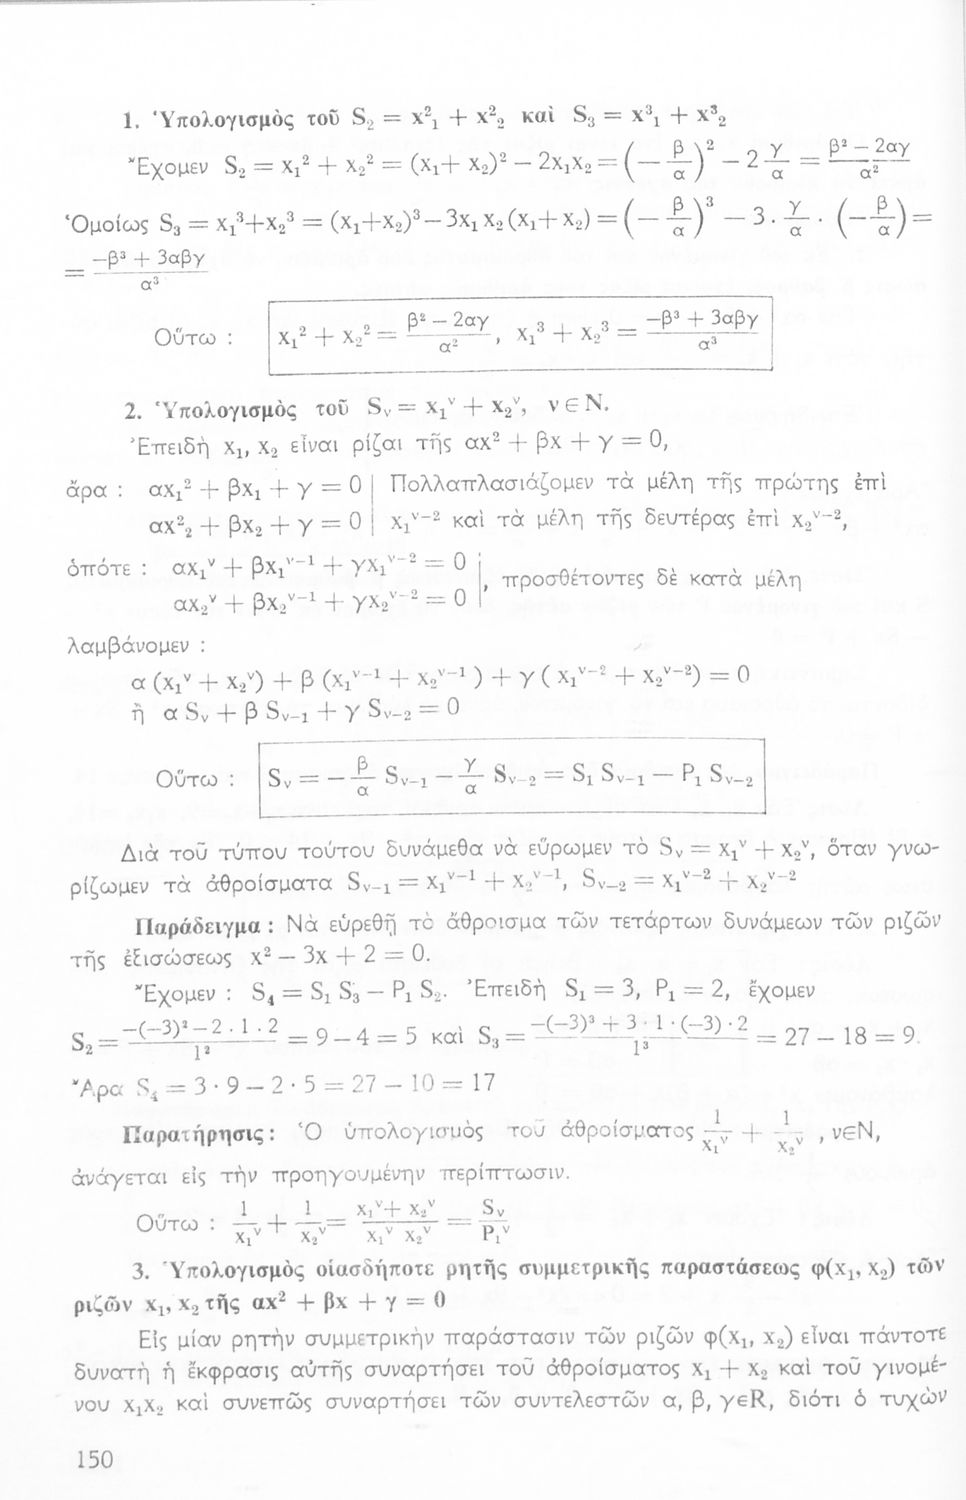 1. Ὑπολογισμὸς τοῦ S₂ = x²₁ + x²₂ καὶ S₃ = x³₁ + x³₂
Ἔχομεν S₂ = x₁² + x₂² = (x₁+ x₂)² − 2x₁x₂ = (− β/α)² − 2 γ/α = (β² − 2αγ)/α²
Ὁμοίως S₃ = x₁³+x₂³ = (x₁+x₂)³ − 3x₁ x₂ (x₁+ x₂) = (− β/α)³ − 3 . γ/α . (− β/α) =
= (−β³ + 3αβγ)/α³
Οὕτω : x₁² + x₂² = (β² − 2αγ)/α² , x₁³ + x₂³ = (−β³ + 3αβγ)/α³
2. Ὑπολογισμὸς τοῦ Sᵥ = x₁ᵛ + x₂ᵛ, ν ϵ N.
Ἐπειδὴ x₁, x₂ εἶναι ρίζαι τῆς αx² + βx + γ = 0,
ἄρα : αx₁² + βx₁ + γ = 0 | Πολλαπλασιάζομεν τὰ μέλη τῆς πρώτης ἐπὶ
αx²₂ + βx₂ + γ = 0 | x₁ᵛ⁻² καὶ τὰ μέλη τῆς δευτέρας ἐπὶ x₂ᵛ⁻²,
ὁπότε : αx₁ᵛ + βx₁ᵛ⁻¹ + γx₁ᵛ⁻² = 0 |
, προσθέτοντες δὲ κατὰ μέλη
αx₂ᵛ + βx₂ᵛ⁻¹ + γx₂ᵛ⁻² = 0 |
λαμβάνομεν :
α (x₁ᵛ + x₂ᵛ) + β (x₁ᵛ⁻¹ + x₂ᵛ⁻¹ ) + γ ( x₁ᵛ⁻² + x₂ᵛ⁻²) = 0
ἢ α Sᵥ + β Sᵥ₋₁ + γ Sᵥ₋₂ = 0
Οὕτω : Sᵥ = − β/α Sᵥ₋₁ − γ/α Sᵥ₋₂ = S₁ Sᵥ₋₁ − P₁ Sᵥ₋₂
Διὰ τοῦ τύπου τούτου δυνάμεθα νὰ εὕρωμεν τὸ Sᵥ = x₁ᵛ + x₂ᵛ, ὅταν γνω-
ρίζωμεν τὰ ἀθροίσματα Sᵥ₋₁ = x₁ᵛ⁻¹ + x₂ᵛ⁻¹, Sᵥ₋₂ = x₁ᵛ⁻² + x₂ᵛ⁻²
Παράδειγμα : Νὰ εὑρεθῇ τὸ ἄθροισμα τῶν τετάρτων δυνάμεων τῶν ριζῶν
τῆς ἐξισώσεως x² − 3x + 2 = 0.
Ἔχομεν : S₄ = S₁ S₃ − P₁ S₂. Ἐπειδὴ S₁ = 3, P₁ = 2, ἔχομεν
S₂ = (−(−3)² − 2 . 1 . 2)/1² = 9 − 4 = 5 καὶ S₃ = (−(−3)³ + 3 · 1 · (−3) · 2)/1³ = 27 − 18 = 9.
Ἄρα S₄ = 3 · 9 − 2 · 5 = 27 − 10 = 17
Παρατήρησις : Ὁ ὑπολογισμὸς τοῦ ἀθροίσματος 1/x₁ᵛ + 1/x₂ᵛ , νϵN,
ἀνάγεται εἰς τὴν προηγουμένην περίπτωσιν.
Οὕτω : 1/x₁ᵛ + 1/x₂ᵛ = (x₁ᵛ+ x₂ᵛ)/(x₁ᵛ x₂ᵛ) = Sᵥ/P₁ᵛ
3. Ὑπολογισμὸς οἱασδήποτε ρητῆς συμμετρικῆς παραστάσεως φ(x₁, x₂) τῶν
ριζῶν x₁, x₂ τῆς αx² + βx + γ = 0
Εἰς μίαν ρητὴν συμμετρικὴν παράστασιν τῶν ριζῶν φ(x₁, x₂) εἶναι πάντοτε
δυνατὴ ἡ ἔκφρασις αὐτῆς συναρτήσει τοῦ ἀθροίσματος x₁ + x₂ καὶ τοῦ γινομέ-
νου x₁x₂ καὶ συνεπῶς συναρτήσει τῶν συντελεστῶν α, β, γϵR, διότι ὁ τυχὼν
150